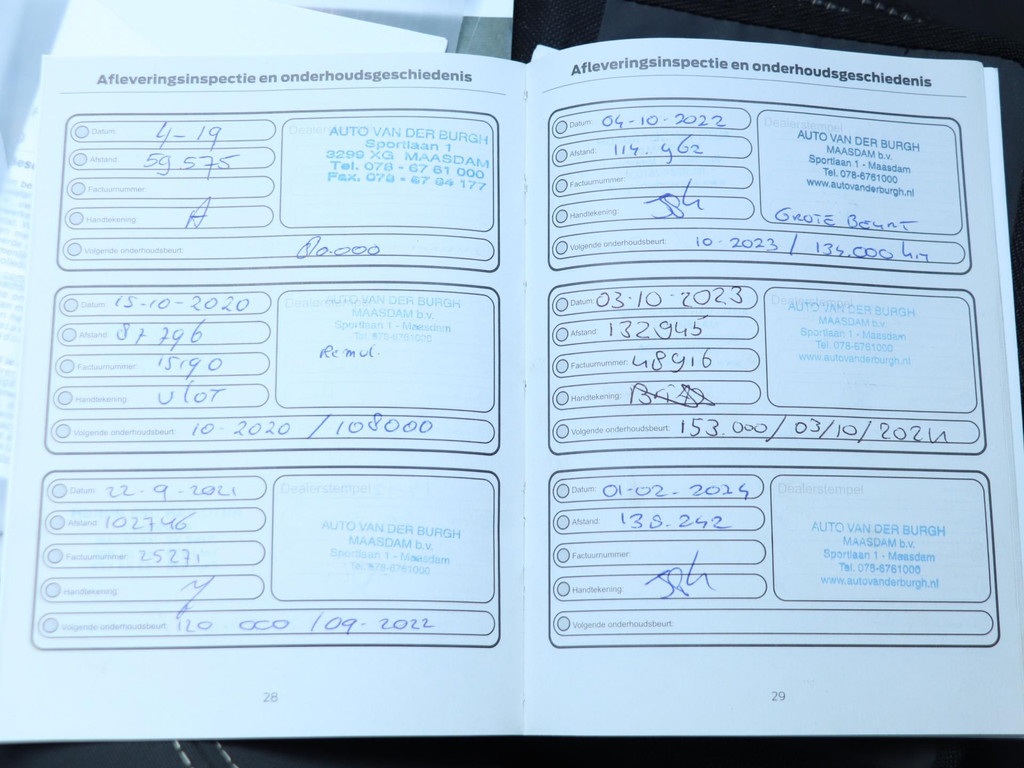 Afleveringsinspectie en onderhoudsgeschiedenis
Datum: 4-19
Afstand: 59.575
Factuurnummer:
Handtekening:
Volgende onderhoudsbeurt: 80.000
Dealerstempel
AUTO VAN DER BURGH
Sportlaan 1
3299 XG MAASDAM
Tel. 078 - 67 61 000
Fax. 078 - 67 64 177
Datum: 15-10-2020
Afstand: 87796
Factuurnummer: 15190
Handtekening: Vlot
Volgende onderhoudsbeurt: 10-2020 / 108000
Dealerstempel
AUTO VAN DER BURGH
MAASDAM b.v.
Sportlaan 1 - Maasdam
Tel. 078-6761000
Remvl.
Datum: 22-9-2021
Afstand: 102746
Factuurnummer: 25271
Handtekening:
Volgende onderhoudsbeurt: 120.000 / 09-2022
Dealerstempel
AUTO VAN DER BURGH
MAASDAM b.v.
Sportlaan 1 - Maasdam
Tel. 078-6761000
28
Afleveringsinspectie en onderhoudsgeschiedenis
Datum: 04-10-2022
Afstand: 114.962
Factuurnummer:
Handtekening:
Volgende onderhoudsbeurt: 10-2023 / 134.000 km
Dealerstempel
AUTO VAN DER BURGH
MAASDAM b.v.
Sportlaan 1 - Maasdam
Tel. 078-6761000
www.autovanderburgh.nl
GROTE BEURT
Datum: 03-10-2023
Afstand: 132945
Factuurnummer: 48916
Handtekening:
Volgende onderhoudsbeurt: 153.000 / 03/10/2024
Dealerstempel
AUTO VAN DER BURGH
MAASDAM b.v.
Sportlaan 1 - Maasdam
Tel. 078-6761000
www.autovanderburgh.nl
Datum: 01-02-2024
Afstand: 138.242
Factuurnummer:
Handtekening:
Volgende onderhoudsbeurt:
Dealerstempel
AUTO VAN DER BURGH
MAASDAM b.v.
Sportlaan 1 - Maasdam
Tel. 078-6761000
www.autovanderburgh.nl
29